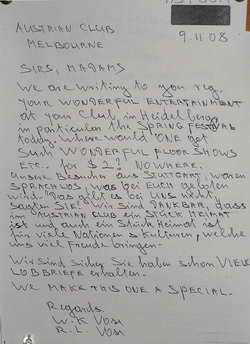 9.11.08
AUSTRIAN CLUB
MELBOURNE
SIRS, MADAMS
We are writing to you reg.
YOUR WONDERFUL ENTERTAINMENT
at your Club, in Heidelberg
in particular the SPRING FESTIVAL
today. Where would ONE get
Such WONDERFUL FLOOR SHOWS
ETC. for $2? NOWHERE.
Unsere Besucher aus STUTTGART, waren
SPRACHLOS, was bei EUCH geboten
wird. "Das gibt es bei UNS nicht"
sagten SIE! Wir sind DANKBAR, dass
im AUSTRIAN CLUB ein STÜCK HEIMAT
ist und auch ein Stück Heimat ist
für viele Nationen & Kulturen, welche
uns viel Freude bringen.
Wir sind sicher Sie haben schon VIELE
LOBBRIEFE erhalten.
WE MAKE THIS ONE A SPECIAL.
Regards
W. K.
R. L.